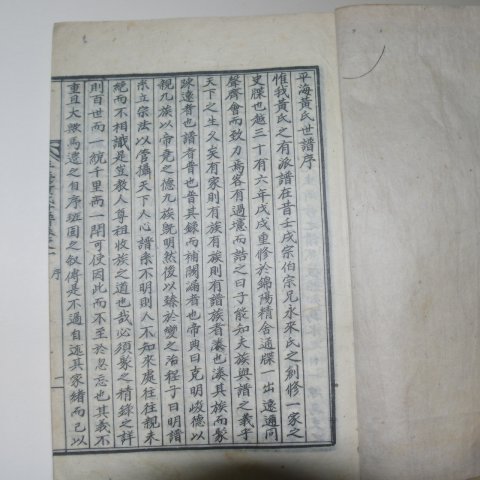 平海黃氏世譜序
惟我黃氏之有派譜在昔壬戌宗伯宗兄永來氏之創修一家之
史牒也越三十有六年戊戌重修於錦陽精舍通牒一出遠邇同
聲齊會而致力焉客有過境而詰之曰子能知夫族與譜之義乎
天下之生久矣有家則有族有族則有譜族者湊也湊其族而聚
踈遠者也譜者普也普其錄而補闕漏者也帝典曰克明峻德以
親九族以帝堯之德九族旣明然後以臻於變之治程子曰明譜
系立宗法以管攝天下人心譜系不明則人不知來處往往親未
絕而不相識是豈敎人尊祖收族之道也哉必須聚之精錄之詳
則百世而一統千里而一閈可使因此而不至於忽忘也其義不
重且大歟馬遷之自序班固之叙傳是不過自述其家緖而已以
序
一